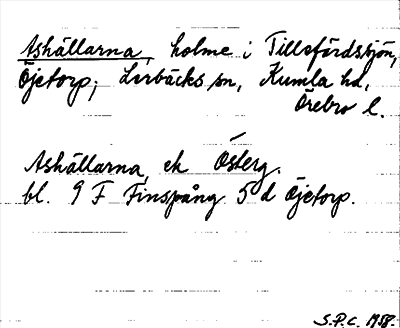 Ashällarna, holme i Tillefärdssjön,
Öjetorp; Lerbäcks sn, Kumla hd,
Örebro l.
Ashällarna, ek Österg.
bl. 9 F Finspång 5 d Öjetorp.
S.P.C. 1958.